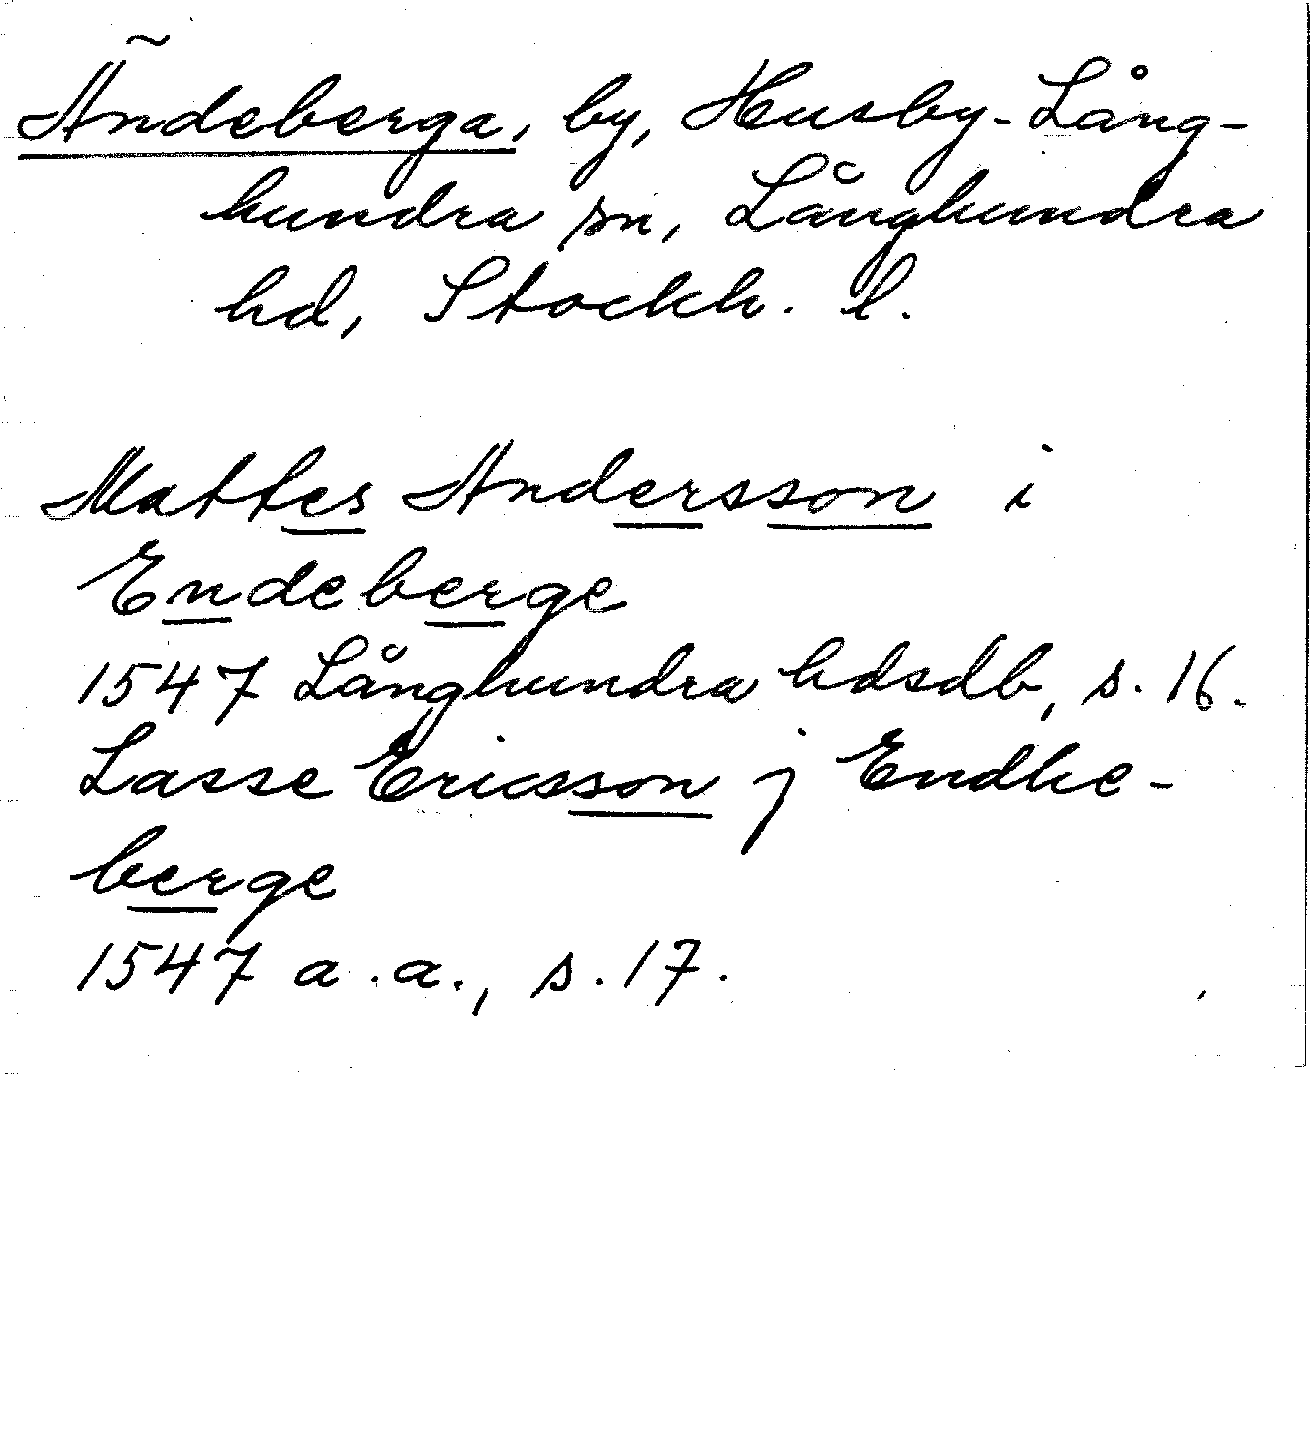 Ändeberga, by, Husby-Lång-
hundra sn, Långhundra
hd, Stockh. l.
Mattes Andersson i
Endeberge
1547 Långhundra hdsdb, s. 16.
Lasse Ericsson j Endhe-
berge
1547 a.a., s. 17.